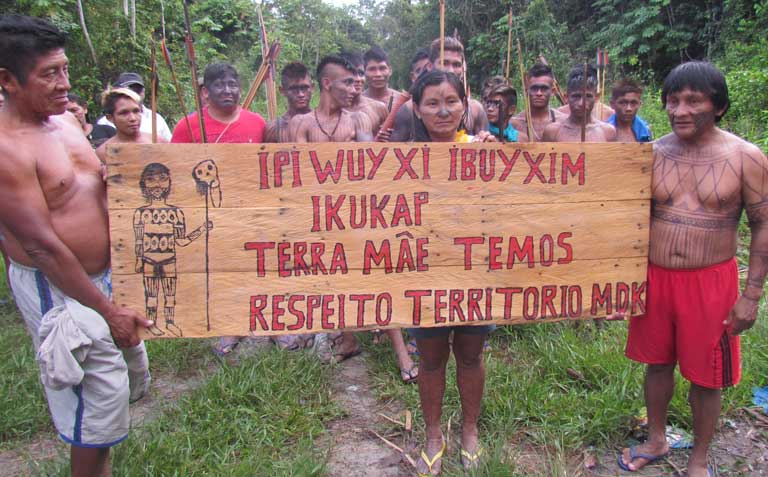 IPI WUYXI IBUYXIM
IKUKAP
TERRA MÃE TEMOS
RESPEITO TERRITORIO MDK